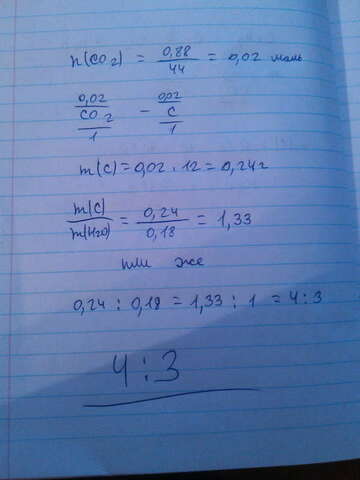 n(CO2) = 0,88/44 = 0,02 моль
0,02/CO2/1 – 0,02/C/1
m(C) = 0,02 · 12 = 0,24 г
m(C)/m(H2O) = 0,24/0,18 = 1,33
или же
0,24 : 0,18 = 1,33 : 1 = 4 : 3
4 : 3